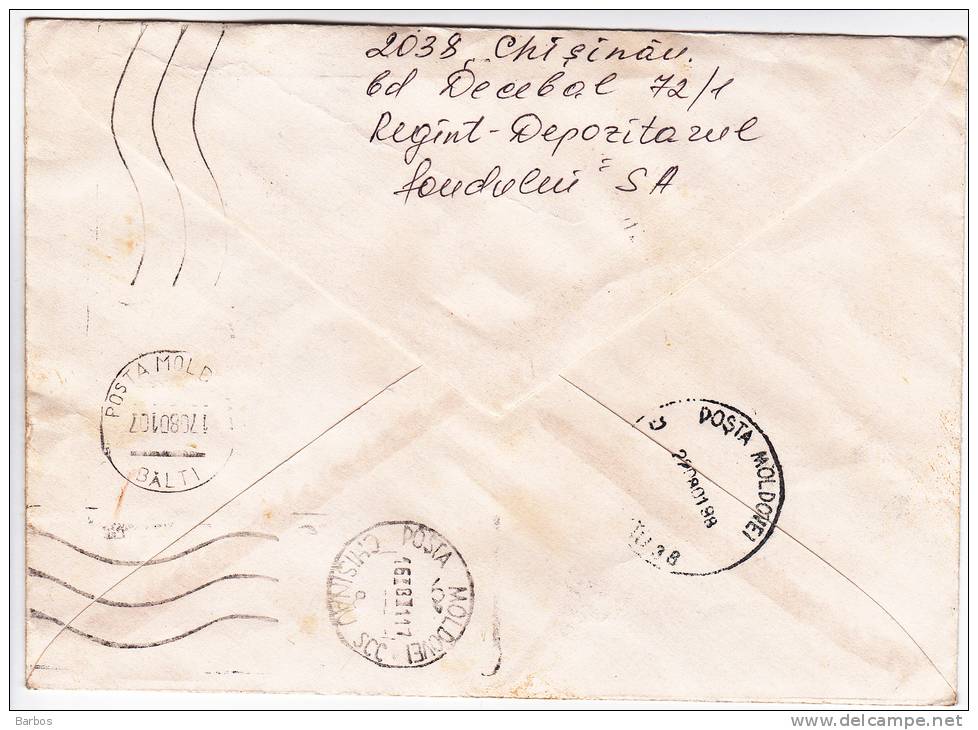 2038 Chişinău.
bd Decebal 72/1
Regint-Depozitarul
fondului SA
POSTA MOLD
17080107
BĂLTI
POŞTA MOLDOVEI
POSTA MOLDOVEI
CHISINAU
Barbos
www.delcampe.net